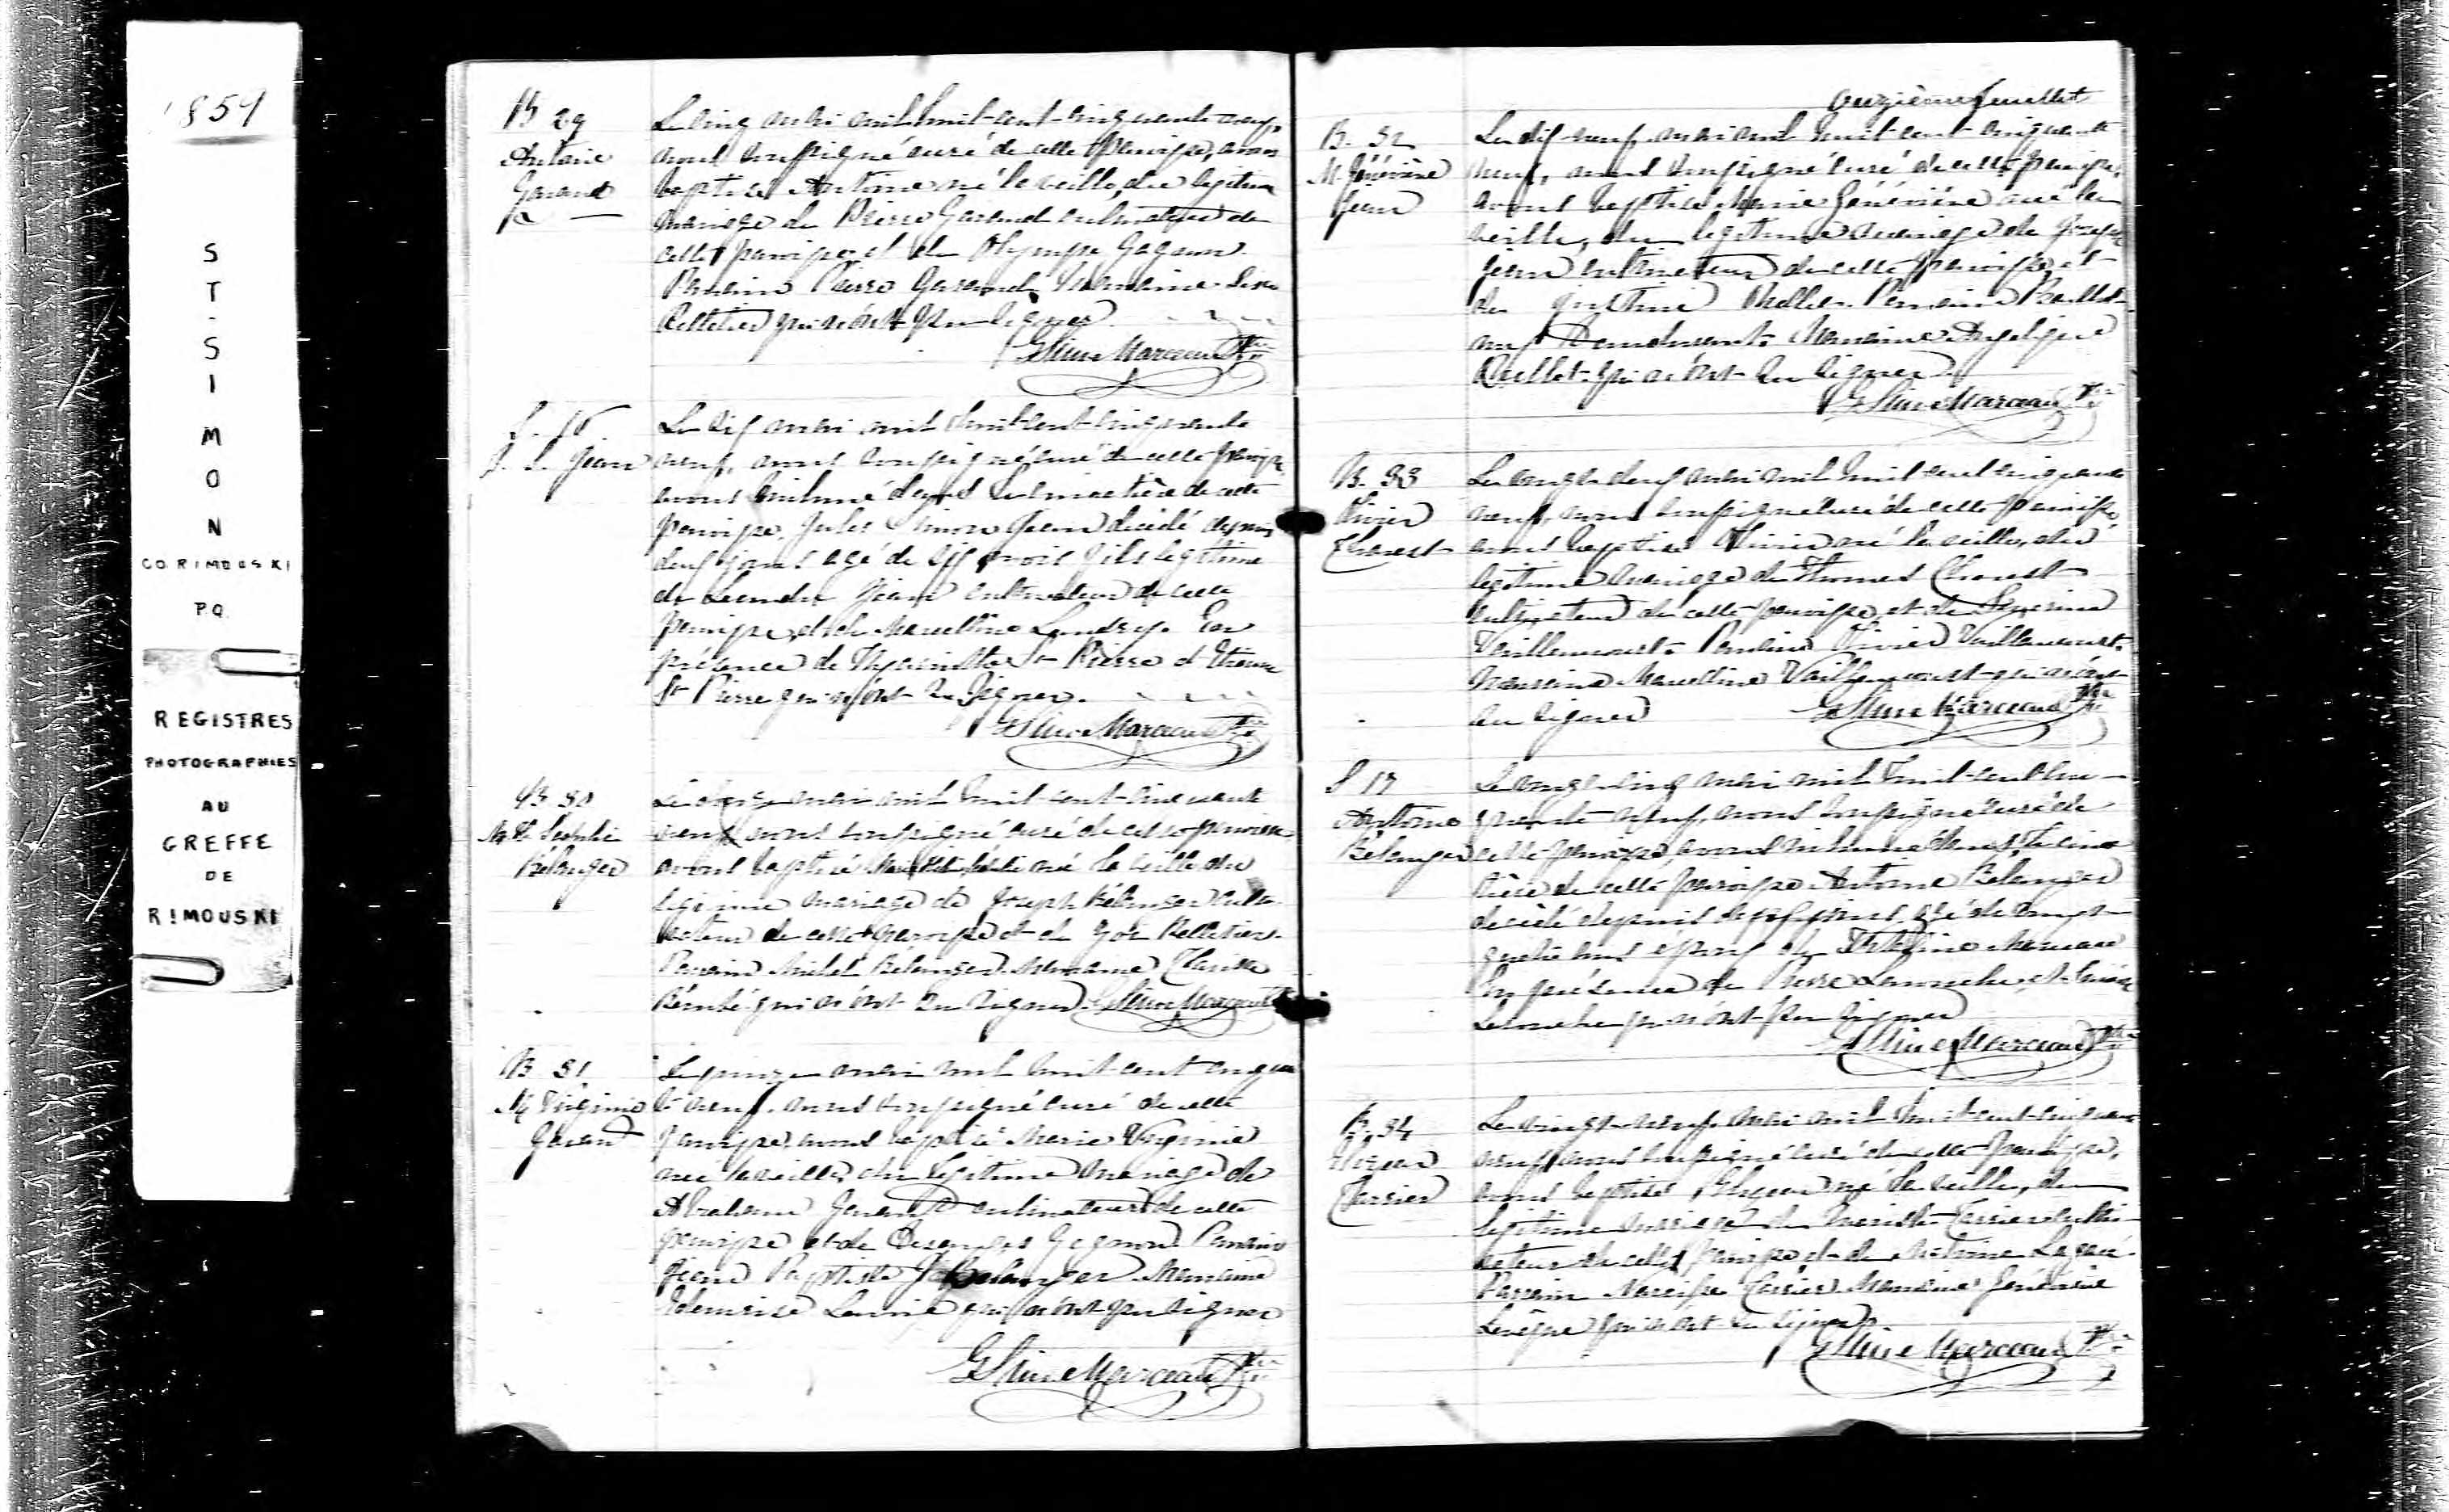 1859
ST-SIMON
CO. RIMOUSKI
P.Q.
REGISTRES
PHOTOGRAPHIES
AU
GREFFE
DE
RIMOUSKI
B 29
Antoine
Garand
Le cinq mai mil huit-cent-cinquante neuf,
nous soussigné curé de cette paroisse, avons
baptisé Antoine né la veille, du légitime
mariage de Pierre Garand cultivateur de
cette paroisse et de Olympe Gagnon.
Parrain Pierre Garand, Marraine
Pelletier qui n'ont pu signer.
Marceau Ptre
S. 16
J. S. Jean
Le dix mai mil huit cent cinquante
neuf, nous soussigné curé de cette paroisse
avons inhumé dans le cimetière de cette
paroisse, Jules Simon Jean décédé depuis
deux jours agé de six mois fils légitime
de Leandre Jean cultivateur de cette
paroisse, et de Marcelline Landry. En
présence de Hyacinthe St Pierre et
St Pierre qui n'ont su signer.
Marceau Ptre
B 30
Bélanger
Le onze mai mil huit-cent-cinquante
neuf nous soussigné curé de cette paroisse
avons baptisé né la veille du
légitime mariage de Joseph Bélanger culti-
vateur de cette paroisse et de Zoé Pelletier.
Parrain Michel Bélanger. Marraine
Bérubé qui n'ont su signer. Marceau
B 31
M. Virginie
Garand
Le quinze mai mil huit cent cinquan
te neuf, nous soussigné curé de cette
paroisse, avons baptisé Marie Virginie
née la veille, du légitime mariage de
Abraham Garand cultivateur de cette
paroisse et de Desanges Gagnon. Parrain
Jean Baptiste Bélanger Marraine
qui n'ont pu signer
Marceau Ptre
onzième feuillet
B. 32
M. Généviève
Jean
Le dix-neuf mai mil huit cent cinquante
neuf, nous soussigné curé de cette paroisse,
avons baptisé Marie Généviève née la
veille, du légitime mariage de Joseph
Jean cultivateur de cette paroisse et
de Justine Parrain
Marraine Angélique
Ouellet qui n'ont su signer.
Marceau Ptre
B. 33
Olivier
Chorest
Le vingt-deux mai mil huit cent cinquante
neuf, nous soussigné curé de cette paroisse,
avons baptisé Olivier né la veille, du
légitime mariage de Thomas Chorest
cultivateur de cette paroisse et de
Vaillancourt. Parrain Olivier Vaillancourt.
Marraine Marcelline Vaillancourt qui n'ont
su signer Marceau Ptre
S 17
Antoine
Bélanger
Le vingt-cinq mai mil huit-cent-cin-
quante neuf, nous soussigné curé de
cette paroisse, avons inhumé dans le cime
tière de cette paroisse Antoine Bélanger
décédé depuis jours, agé de vingt
quatre ans époux de
En présence de Pierre Larouche, et
Larouche qui n'ont pu signer
Marceau Ptre
B. 34
Elzéar
Carrier
Le vingt-neuf mai mil huit cent-cinquante
neuf, nous soussigné curé de cette paroisse,
avons baptisé Elzéar né la veille, du
légitime mariage de Carrier culti-
vateur de cette paroisse et de
Parrain Narcisse Carrier. Marraine Généviève
Levêque qui n'ont su signer.
Marceau Ptre